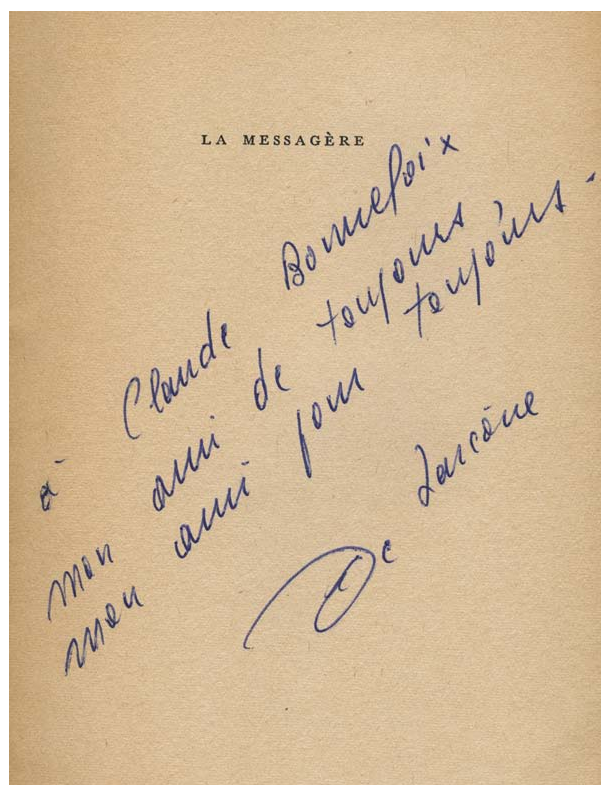 LA MESSAGÈRE
à Claude Bonnefoix
mon ami de toujours
mon ami pour toujours.
Lascène